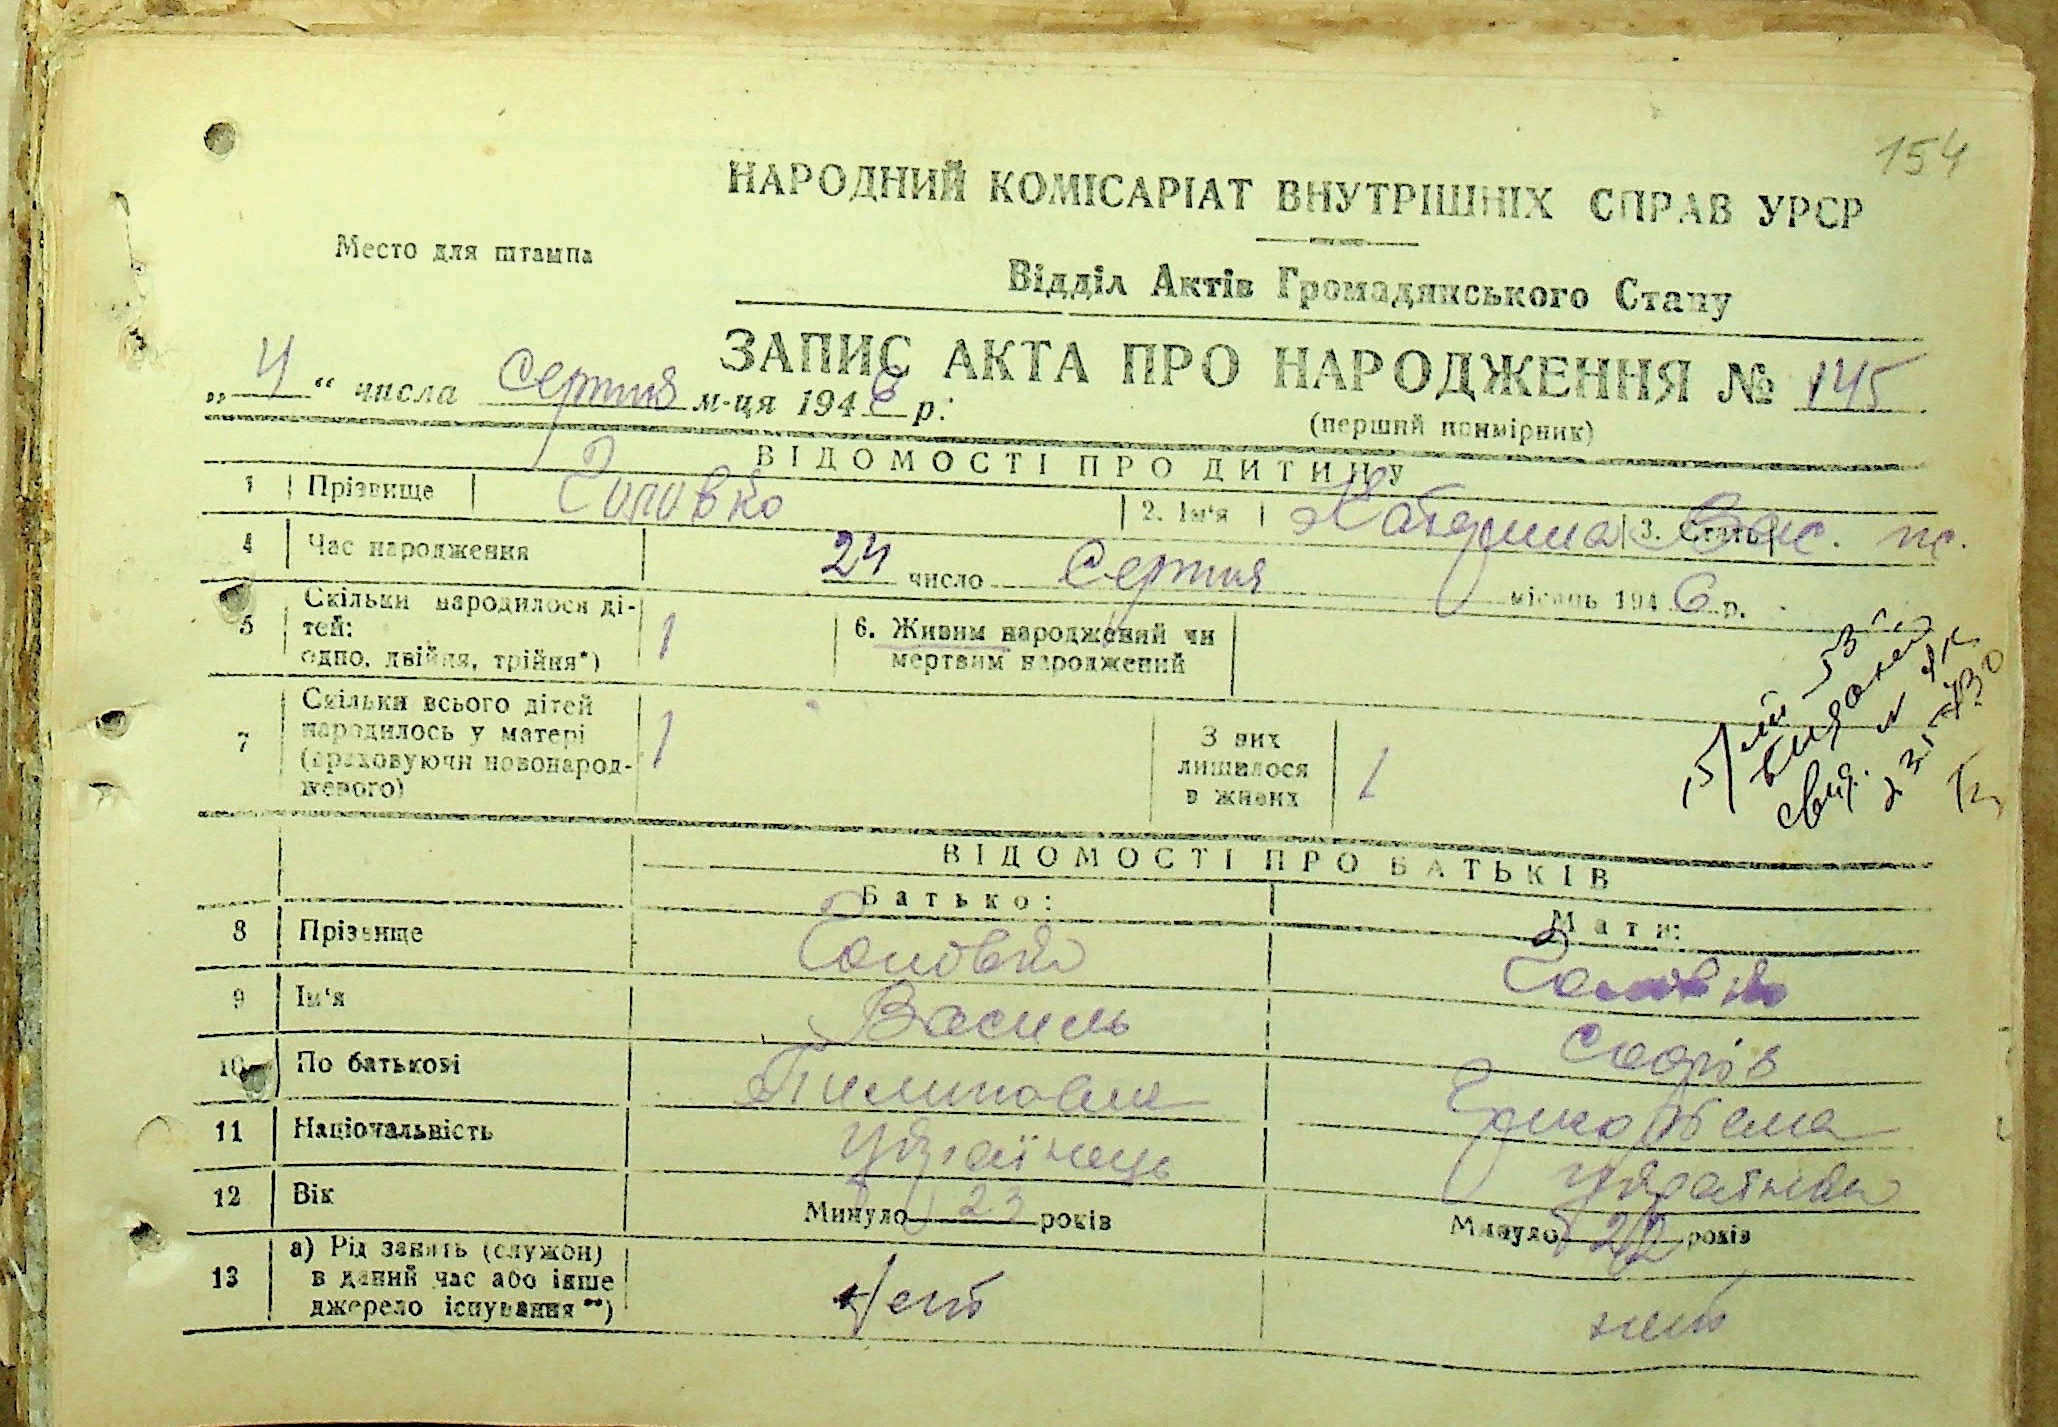 154
НАРОДНИЙ КОМІСАРІАТ ВНУТРІШНІХ СПРАВ УРСР
Место для штампа
Відділ Актів Громадянського Стану
ЗАПИС АКТА ПРО НАРОДЖЕННЯ № 145
„ 4 “ числа Серпня м-ця 1946 р.
(перший примірник)
ВІДОМОСТІ ПРО ДИТИНУ
1 Прізвище Головко 2. Ім'я Катерина 3. Стать Вас. ж.
4 Час народження 24 число Серпня місяць 1946 р.
5 Скільки народилося ді-
тей:
одно, двійня, трійня*) 1
6. Живим народжений чи
мертвим народжений
7 Скільки всього дітей
народилось у матері
(враховуючи новонарод-
женого) 1
З них
лишилося
в живих 1
ВІДОМОСТІ ПРО БАТЬКІВ
Батько: Мати:
8 Прізвище Головко Головко
9 Ім'я Василь Софія
10 По батькові Пилипович
11 Національність Українець Українка
12 Вік Минуло 23 років Минуло 22 років
13 а) Рід занять (служби)
в даний час або інше
джерело існування**) нет нет